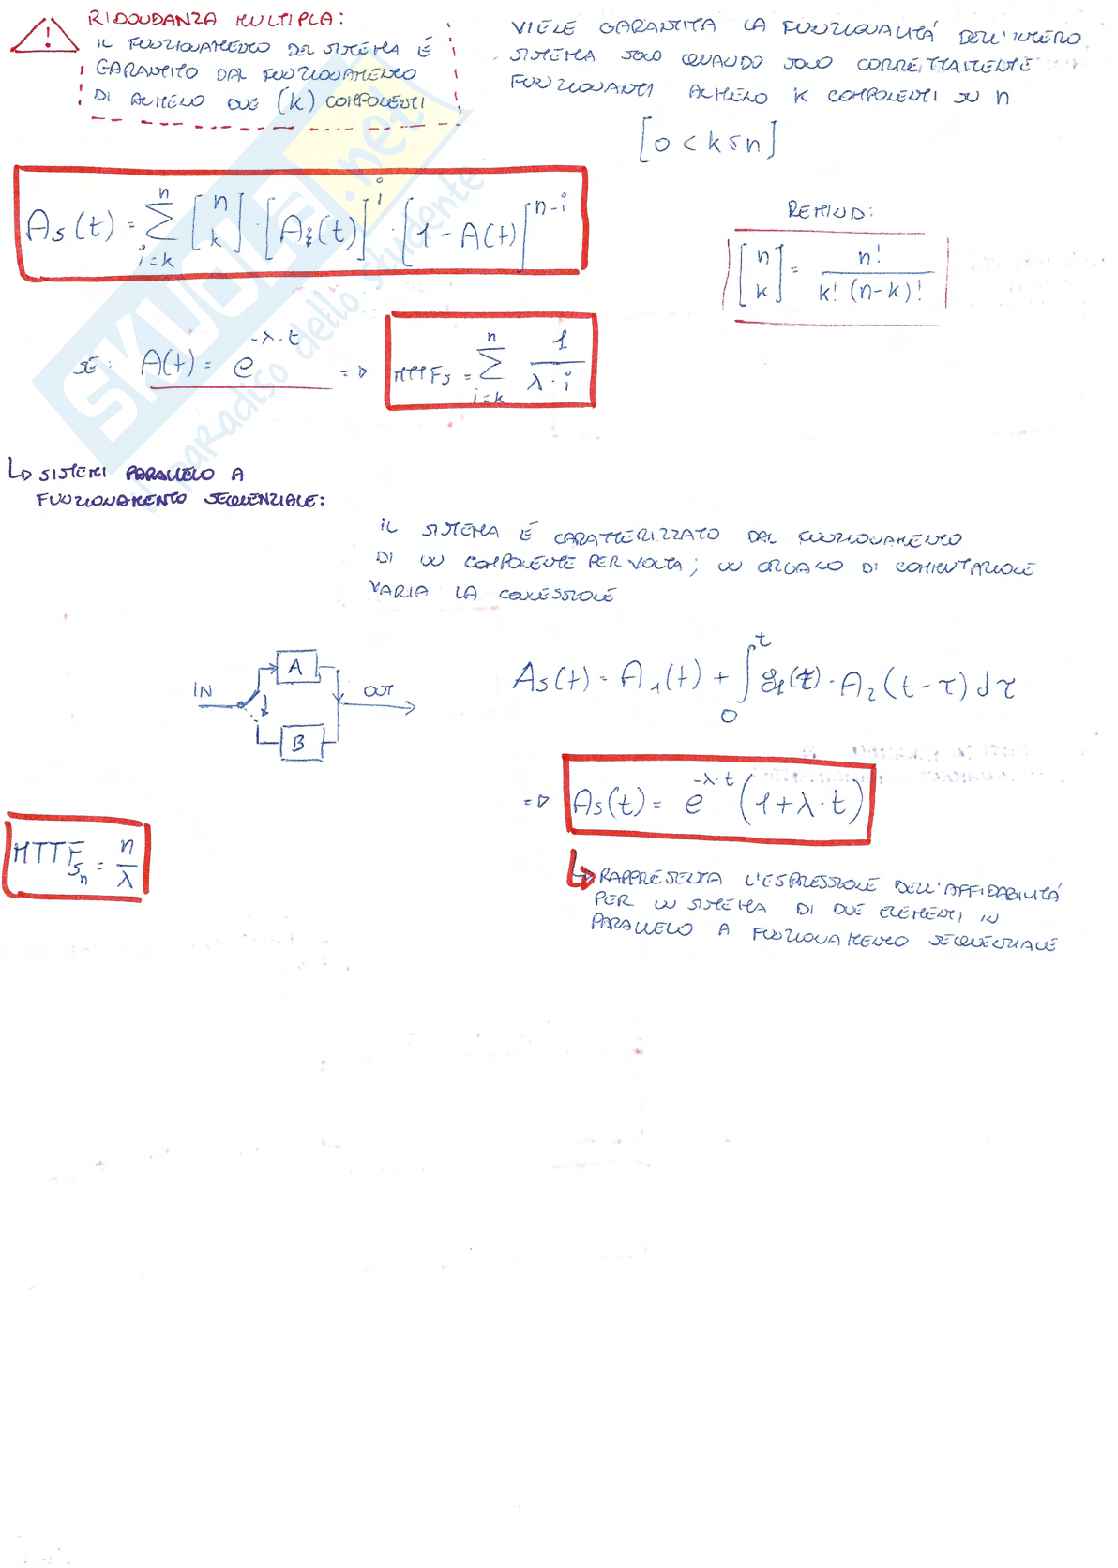 RIDONDANZA MULTIPLA:
IL FUNZIONAMENTO DEL SISTEMA É
GARANTITO DAL FUNZIONAMENTO
DI ALMENO DUE (k) COMPONENTI
VIENE GARANTITA LA FUNZIONALITÁ DELL'INTERO
SISTEMA SOLO QUANDO SONO CORRETTAMENTE
FUNZIONANTI ALMENO K COMPONENTI SU n
[0 < k ≤ n]
As(t) = ∑_{i=k}^{n} [n k] · [A_i(t)]^i · [1 - A(t)]^{n-i}
REMIND:
[n k] = n! / k! (n-k)!
SE: A(t) = e^{-λ·t} => MTTFs = ∑_{i=k}^{n} 1 / λ·i
↳ SISTEMI PARALLELO A
FUNZIONAMENTO SEQUENZIALE:
IL SISTEMA É CARATTERIZZATO DAL FUNZIONAMENTO
DI UN COMPONENTE PER VOLTA; UN ORGANO DI COMMUTAZIONE
VARIA LA CONNESSIONE
IN
A
B
OUT
As(t) = A₁(t) + ∫₀ᵗ g₁(τ) · A₂(t-τ) dτ
=> As(t) = e^{-λ·t} (1+λ·t)
MTTF_{Sn} = n/λ
↳ RAPPRESENTA L'ESPRESSIONE DELL'AFFIDABILITÁ
PER UN SISTEMA DI DUE ELEMENTI IN
PARALLELO A FUNZIONAMENTO SEQUENZIALE
SKUOLA.net
il paradiso dello studente